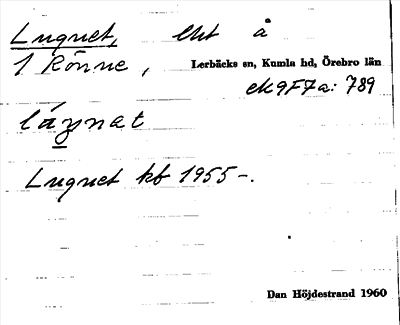 Lugnet, lht å
1 Rönne, Lerbäcks sn, Kumla hd, Örebro län
ek 9F7a: 789
láŋnat
Lugnet kb 1955-.
Dan Höjdestrand 1960